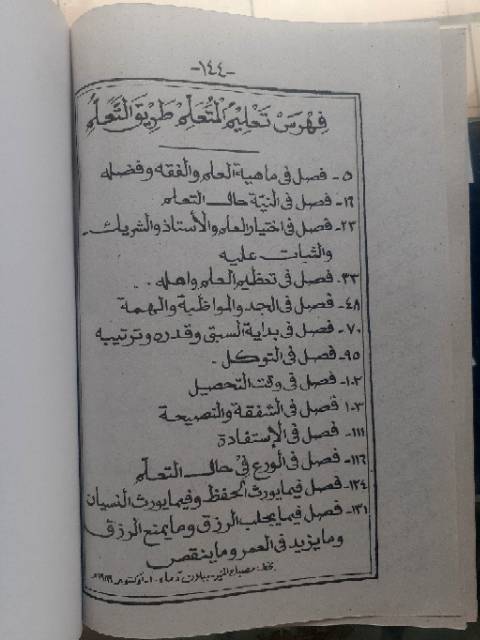 -١٤٤-
فِهْرَسْ تَعْلِيْمُ الْمُتَعَلِّمْ طَرِيْقَ التَّعَلُّمْ
٥- فصل في ماهية العلم والفقه وفضله
١٦- فصل في النيّة حال التعلم
٢٣- فصل في اختيار العلم والأستاذ والشريك
والثبات عليه
٣٣- فصل في تعظيم العلم واهله
٤٨- فصل في الجد والمواظبة والهمة
٧٠- فصل في بداية السبق وقدره وترتيبه
٩٥- فصل في التوكل
١٠٢- فصل في وقت التحصيل
١٠٣ فصل في الشفقة والنصيحة
١١١- فصل في الإستفادة
١١٦- فصل في الورع في حال التعلّم
١٢٤- فصل فيما يورث الحفظ وفيما يورث النسيان
١٣١- فصل فيما يجلب الرزق وما يمنع الرزق
وما يزيد في العمر وما ينقص
بخط: مصباح المنير